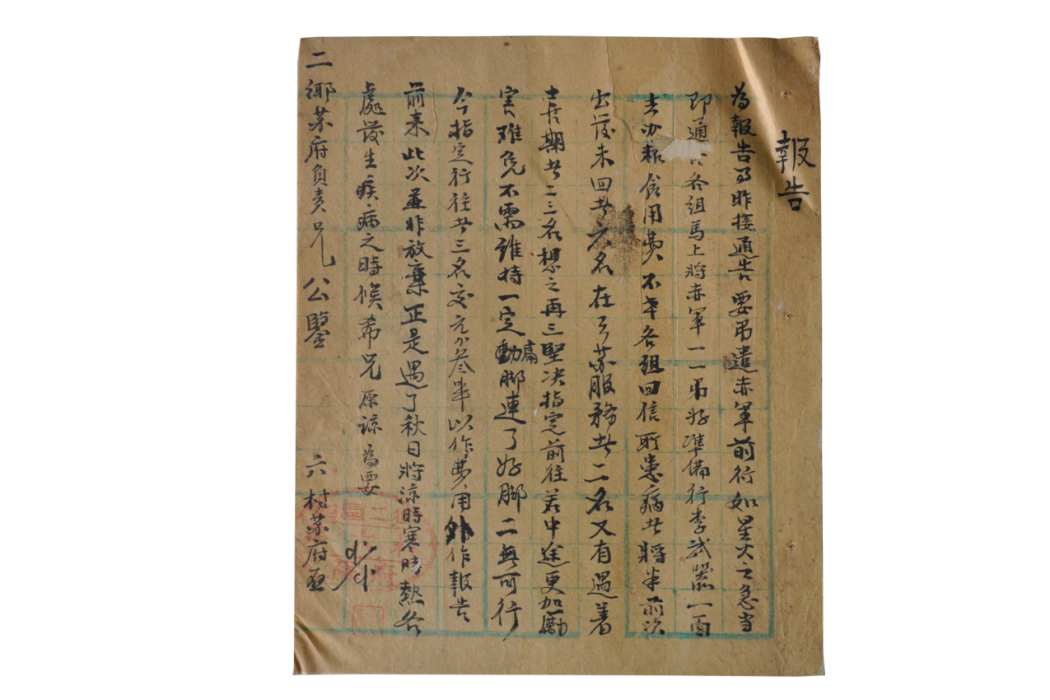 報告
為報告事昨接通告要吊遣赤軍前行如星火之急当
即通告各组馬上將赤軍一一吊好準備行李武器一面
去办粮食用費不幸各组回信所患病者將半前次
出發未回者六名在了苏服務者二名又有遇着
喪期者二三名想之再三堅决指定前往若中途更加勵
害难免不需維持一定動搖脚連了好脚二無可行
今指定行往者三名交元分叁半以作費用外作報告
前来此次並非放棄正是遇了秋日將凉時寒時熱各
處發生疾病之時候希兄原諒為要
二鄉苏府負責兄公鑒
六村苏府